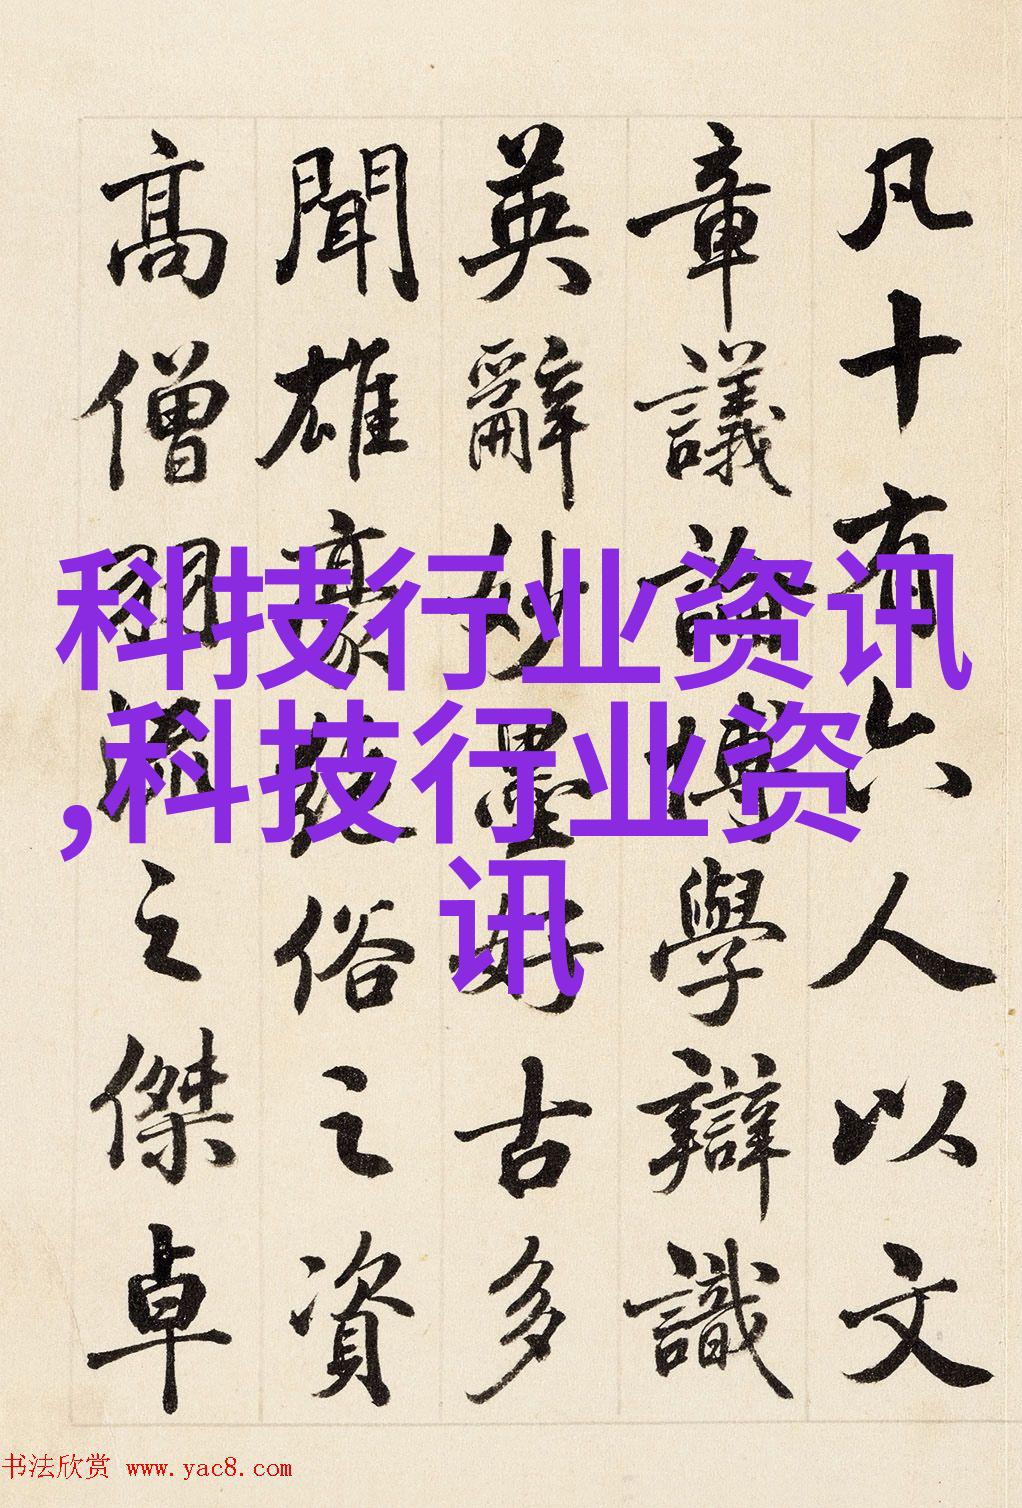 凡十有六人以文
章議論博學辯識
英辭妙墨好古多
聞雄豪絕俗之資
高僧羽流之傑卓
科技行业资讯
,科技行业资
讯
书法欣赏 www.yac8.com